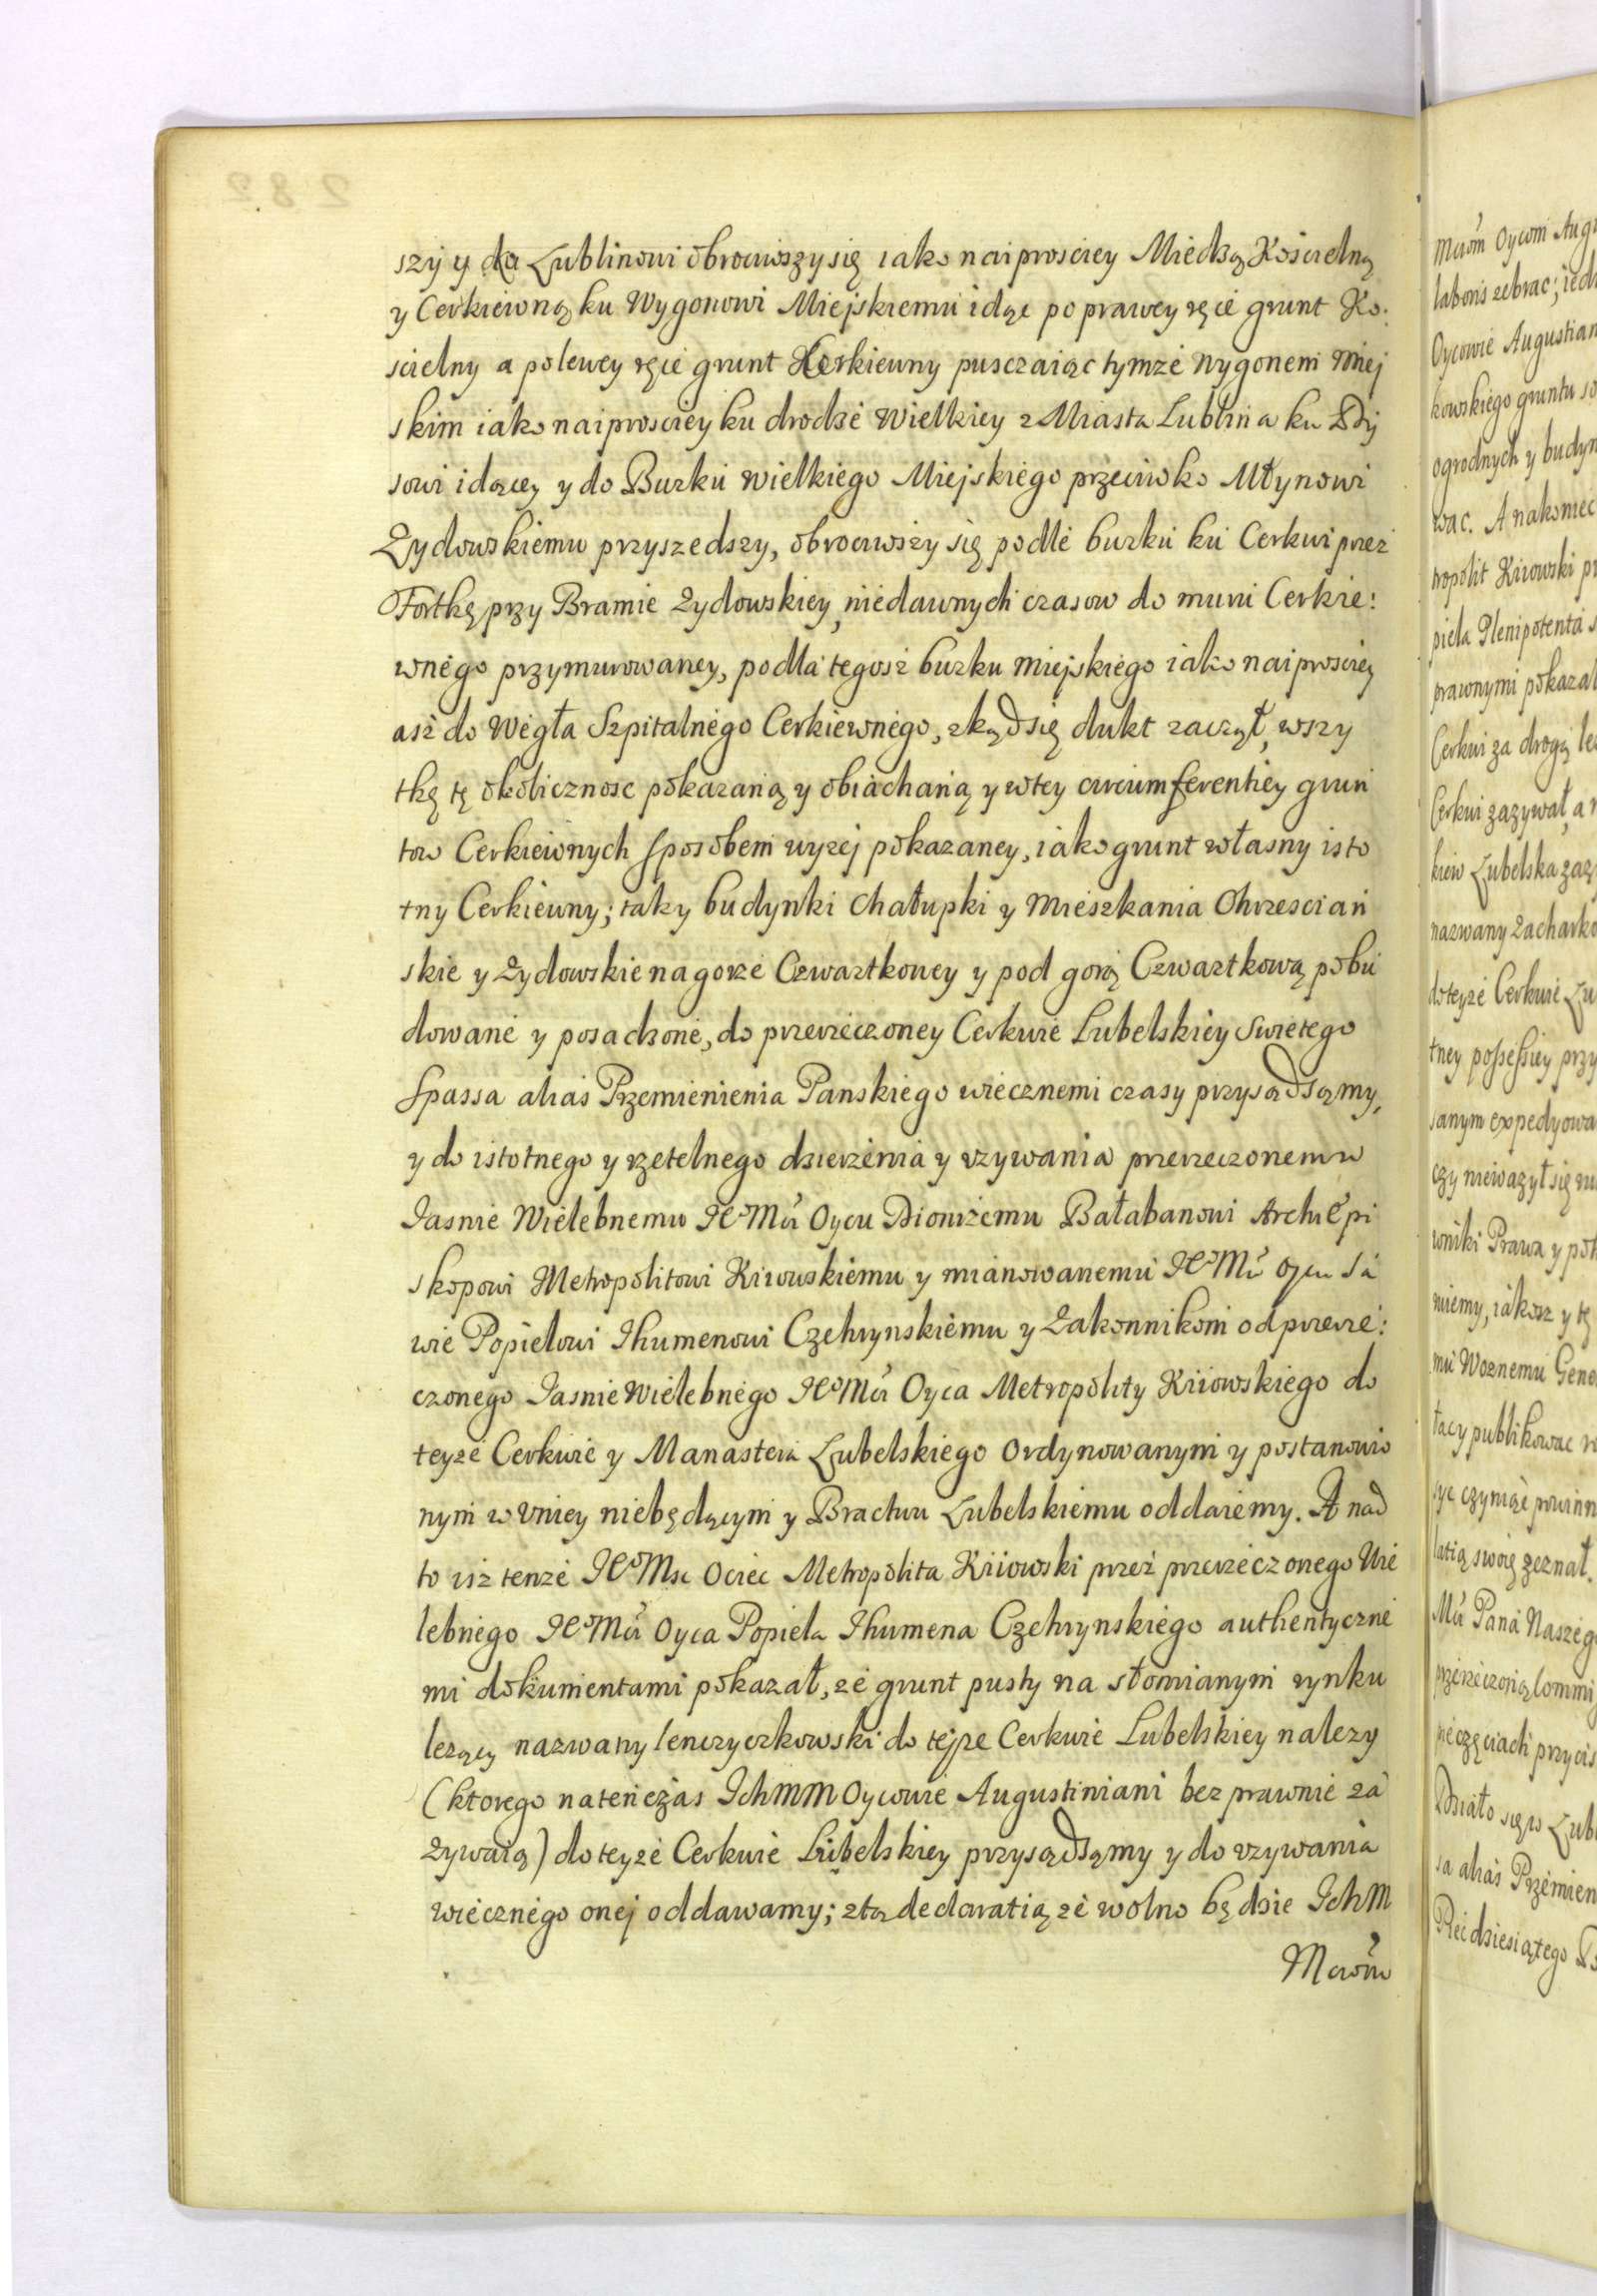 szy y do Lublinowi obrociwszy się iako naiprosciey Miedzą Koscielną
y Cerkiewną ku Wygonowi Miejskiemu idąc po prawey ręce grunt Ko:
scielny a polewey ręce grunt Cerkiewny pusczaiąc tymze Wygonem Miej
skim iako naiprosciey ku drodze Wielkiey z Miasta Lublina ku Dy
sowi idącey y do Burku wielkiego Miejskiego przeciwko Młynowi
Zydowskiemu przyszedszy, obrociwszy się podle burku ku Cerkwi przez
Fortkę przy Bramie Zydowskiey, niedawnych czasow do muru Cerkie:
wnego przymurowaney, podla tegosz burku miejskiego iako naiprosciey
asz do Węgła Szpitalnego Cerkiewnego, zkąd się dukt zaczął, wszy
tkę tę okolicznosc pokazaną y obiachaną y wtey circumferentiey grun
tow Cerkiewnych sposobem wyzej pokazaney, iako grunt własny isto
tny Cerkiewny; taky budynki chałupki y mieszkania Chrzescian
skie y Zydowskie na gorze Czwartkowey y pod gorą Czwartkową pobu
dowane y posadzone, do przerzeczoney Cerkwie Lubelskiey Swietego
Spassa alias Przemienienia Panskiego wiecznemi czasy przysądzamy,
y do istotnego y rzetelnego dzierzenia y vzywania przerzeczonemu
Iasnie Wielebnemu Je͠o Mci Oycu Dionizemu Bałabanowi Archiepi
skopowi Metropolitowi Kiiowskiemu y mianowanemu Je͠o Mci Oycu Sa
wie Popielowi Ihumenowi Czehrynskiemu y Zakonnikom od przerze:
czonego Iasnie Wielebnego Je͠o Mci Oyca Metropolity Kiiowskiego do
teyze Cerkwie y Manastera Lubelskiego ordynowanym y postanowio
nym w Vniey niebędącym y Bractwu Lubelskiemu oddaiemy. A nad
to isz tenze Je͠o Msc Ociec Metropolita Kiiowski przez przerzeczonego Wie
lebnego Je͠o Mci Oyca Popiela Ihumena Czehrynskiego authentyczne
mi dokumentami pokazał, ze grunt pusty na słomianym rynku
lezący nazwany lenczyczkowski do tejze Cerkwie Lubelskiey nalezy
(ktorego natenczas Ichmm Oycowie Augustiniani bez prawnie za
zywaią) do teyze Cerkwie Lubelskiey przysądzamy y do vzywania
wiecznego onej oddawamy; ztą declaratią ze wolno będzie Ichm
Mciom
Mciom Oycom Aug
laboris zebrac; iedn
Oycowie Augustian
kowskiego gruntu so
ogrodnych y budyn
wac. A nakoniec
tropolit Kiiowski pr
piela Plenipotenta s
prawnymi pokazal
Cerkwi za drogą le
Cerkwi zazywał, a n
kiew Lubelska zaz
nazwany Zacharko
do teyze Cerkwie Lu
tney possessiey przy
sanym expedyowa
czy niewazył się
wniki Prawa y po
niemy, iakosz y tę
mu Woznemu Gene
tacy publikowac
czyniąc powinn
latią swoię zeznał.
Mci Pana Naszeg
przerzeczoną commi
pieczęciach przycis
Działo się w Lub
sa alias Przemien
Piecdziesiątego